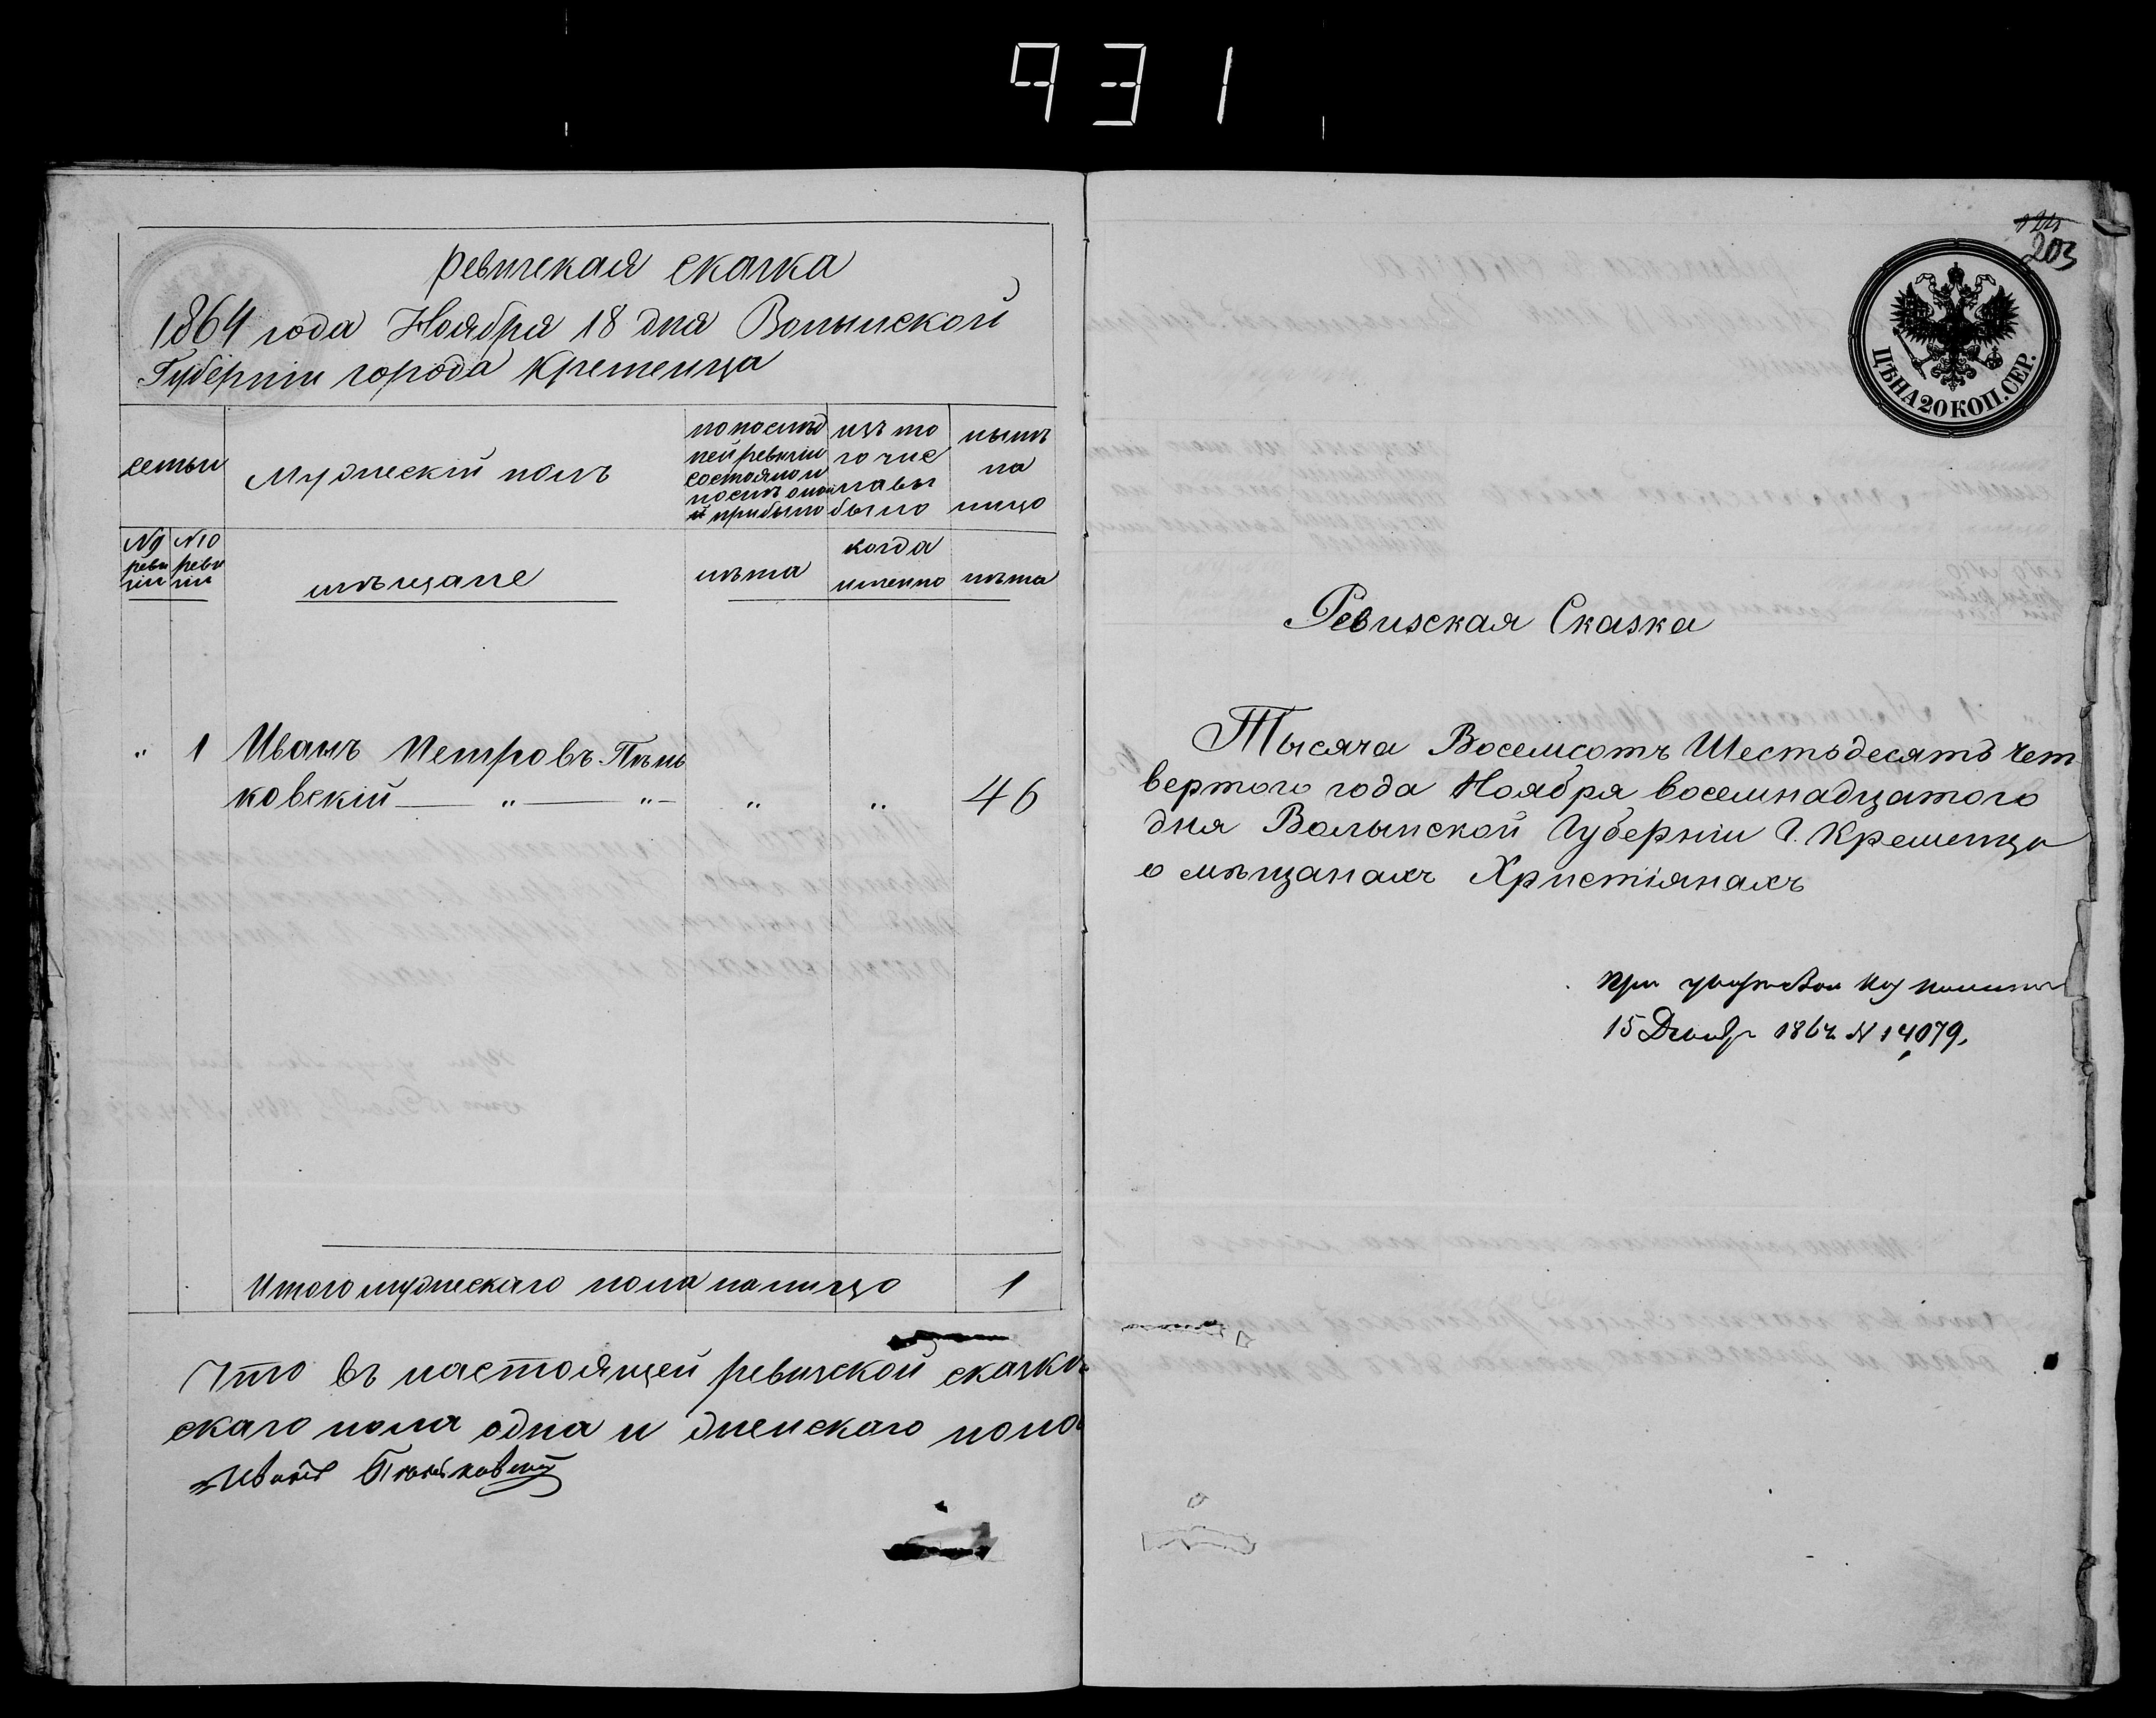 931
Ревизская сказка
1864 года Ноября 18 дня Волынской
Губерніи города Кременца
семьи
Мужескій полъ
по послѣд
ней ревизіи
состояло и
послѣ оной
прибыло
изъ то
го чис
ла вы
было
нынѣ
на
лицо
№9
реви
зіи
№10
реви
зіи
мѣщане
лѣта
когда
именно
лѣта
" 1 Иванъ Петровъ Пѣнь
ковскій — " — " — " " 46
Итого мужескаго пола на лицо 1
Что въ настоящей ревизской сказкѣ
скаго пола одна и женскаго пола
Иванъ Пѣньковскій
124
203
ЦѢНА 20 КОП. СЕР.
Ревизская Сказка
Тысяча Восемсотъ Шестьдесятъ чет
вертого года Ноября восемнадцатого
дня Волынской Губерніи Г. Кременца
о мѣщанахъ Христіянахъ
при
15 Декабр 1864 № 14079.